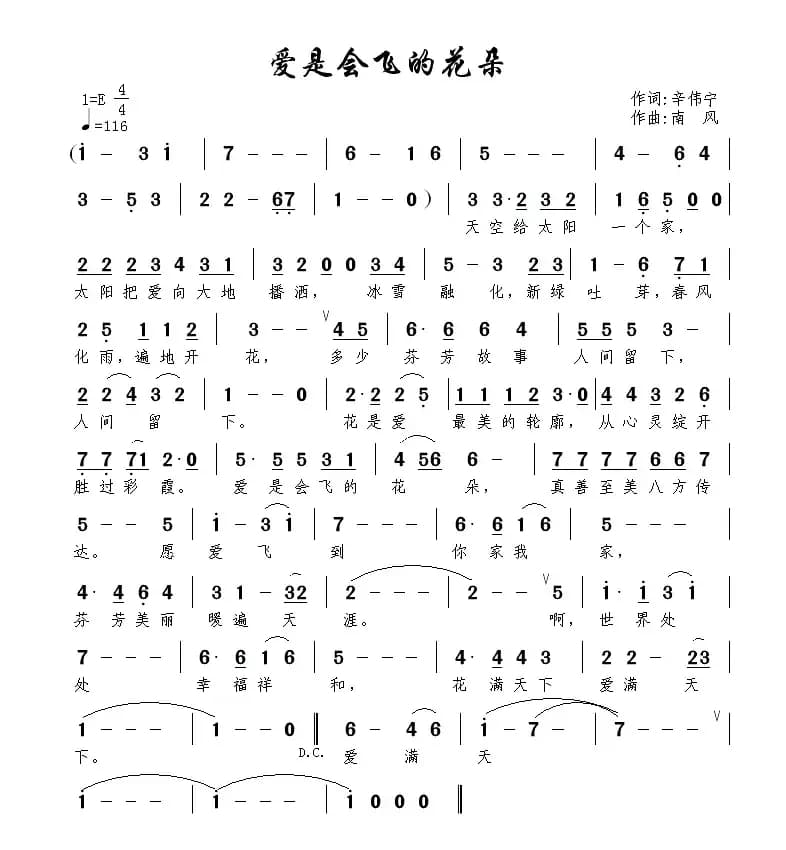 爱是会飞的花朵
1=E 4/4
♩=116
作词:辛伟宁
作曲:南 风
(i - 3 i | 7 - - - | 6 - 1 6 | 5 - - - | 4 - 6 4 |
3 - 5 3 | 2 2 - 67 | 1 - - 0 ) | 3 3· 2 3 2 | 1 6 5 0 0 |
天空给太阳 一个家,
2 2 2 3 4 3 1 | 3 2 0 0 3 4 | 5 - 3 2 3 | 1 - 6 7 1 |
太阳把爱向大地 播洒, 冰雪 融 化,新绿 吐 芽,春风
2 5 1 1 2 | 3 - - V 4 5 | 6· 6 6 4 | 5 5 5 3 - |
化雨,遍地开 花, 多少 芬芳故事 人间留下,
2 2 4 3 2 | 1 - - 0 | 2· 2 2 5 | 1 1 1 2 3· 0 | 4 4 3 2 6 |
人间 留 下。 花是爱 最美的轮廓, 从心灵绽开
7 7 7 1 2· 0 | 5· 5 5 3 1 | 4 5 6 6 - | 7 7 7 7 6 6 7 |
胜过彩霞。 爱是会飞的 花 朵, 真善至美八方传
5 - - 5 | i - 3 i | 7 - - - | 6· 6 1 6 | 5 - - - |
达。 愿 爱 飞 到 你家我 家,
4· 4 6 4 | 3 1 - 3 2 | 2 - - - | 2 - - V 5 | i· i 3 i |
芬芳美丽 暖遍 天 涯。 啊, 世界处
7 - - - | 6· 6 1 6 | 5 - - - | 4· 4 4 3 | 2 - - 2 3 |
处 幸福祥 和, 花满天下 爱满 天
1 - - - | 1 - - 0 ‖ 6 - 4 6 | i - 7 - | 7 - - - V |
下。 D.C. 爱 满 天
1 - - - | 1 - - - | 1 0 0 0 ‖